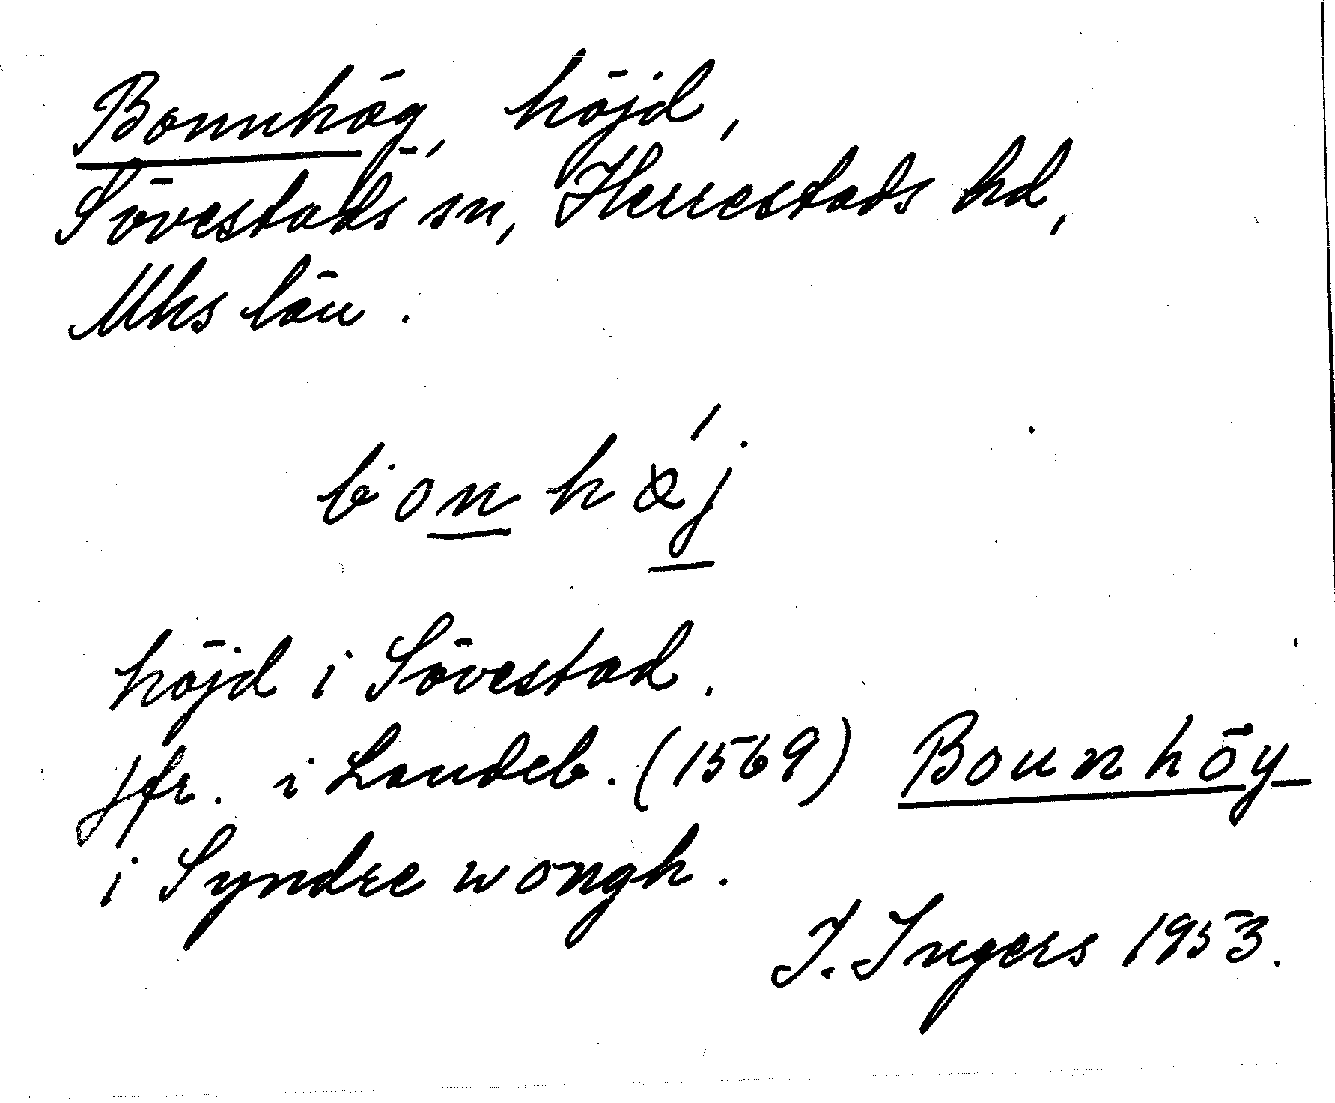 Bonnhög, höjd,
Sövestads sn, Herrestads hd,
Mhs län.
bonhöj
höjd i Sövestad.
jfr. i Landeb. (1569) Bounhöy
i Syndre wongh.
I. Ingers 1953.